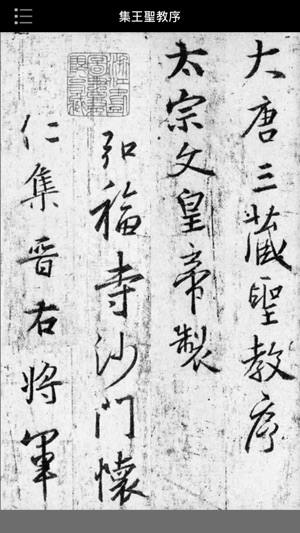 集王聖教序
大唐三藏聖教序
太宗文皇帝製
弘福寺沙門懷
仁集晋右將軍